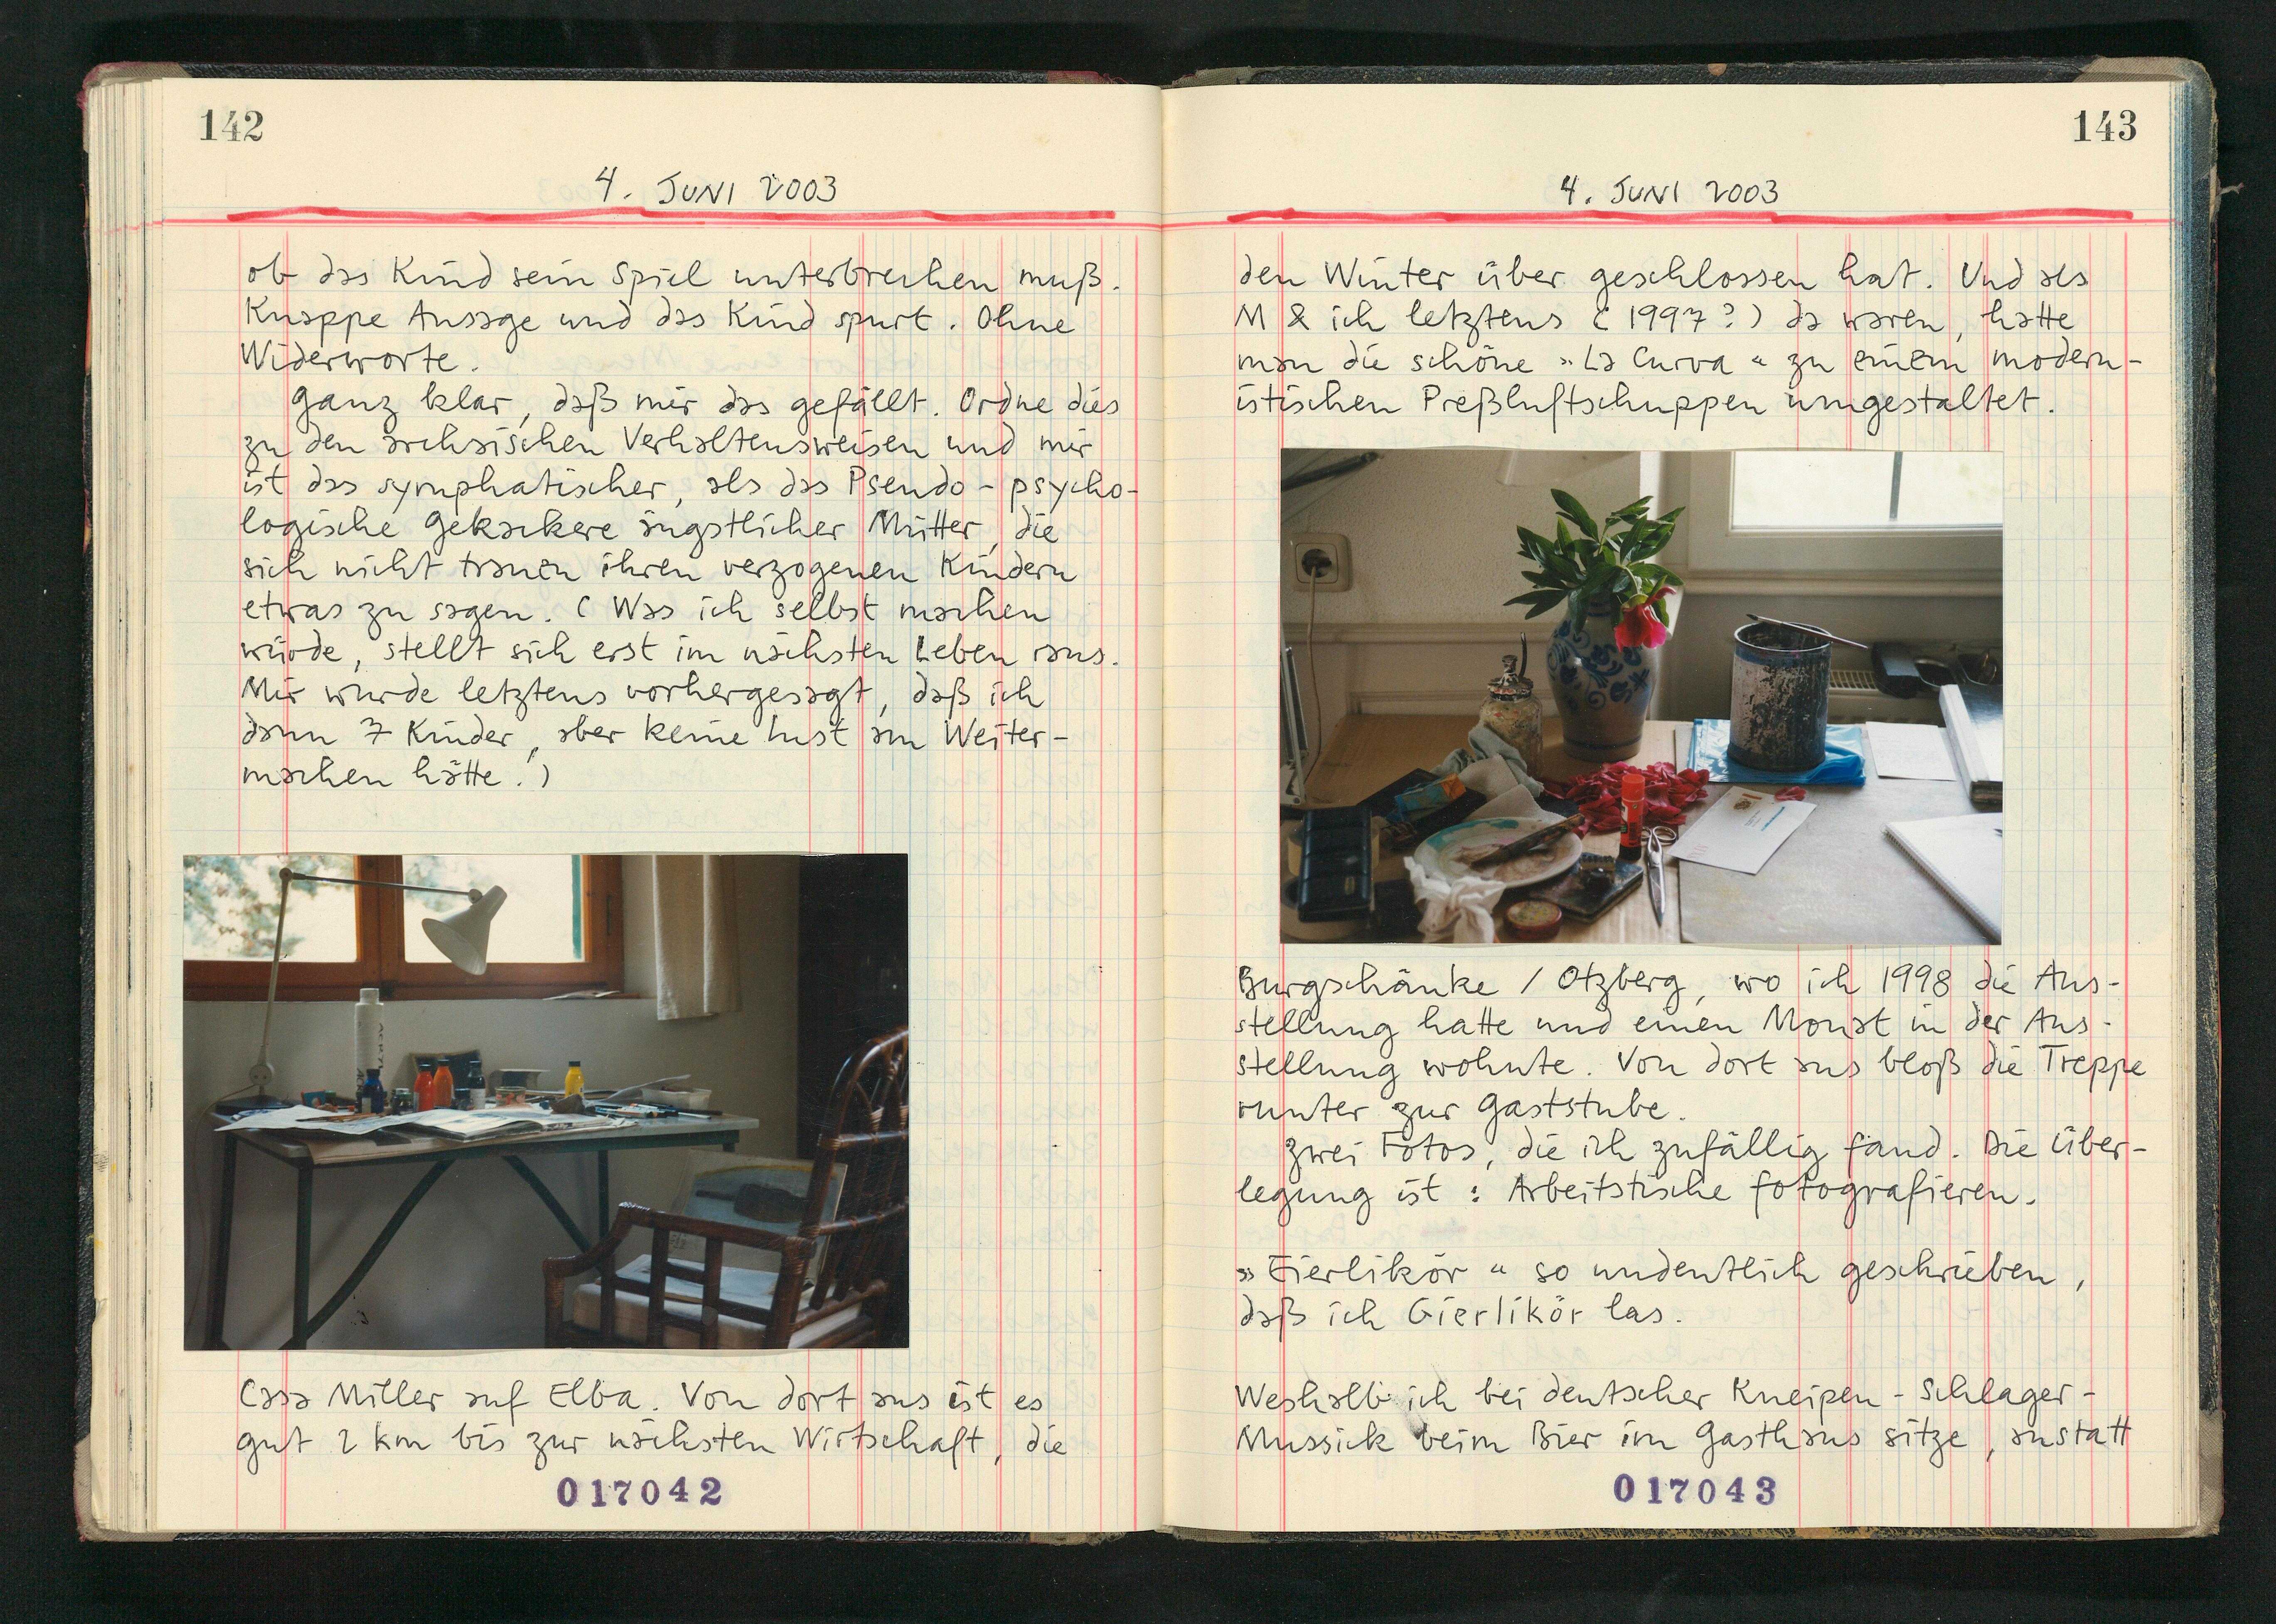 142
4. JUNI 2003
ob das Kind sein Spiel unterbrechen muß.
Knappe Ansage und das Kind spurt. Ohne
Widerworte.
Ganz klar, daß mir das gefällt. Ordne dies
zu den archaischen Verhaltensweisen und mir
ist das symphatischer, als das Pseudo-psycho-
logische Gekackere ängstlicher Mütter, die
sich nicht trauen ihren verzogenen Kindern
etwas zu sagen. (Was ich selbst machen
würde, stellt sich erst im nächsten Leben raus.
Mir wurde letztens vorhergesagt, daß ich
dann 7 Kinder, aber keine Lust am Weiter-
machen hätte.)
Casa Miller auf Elba. Von dort aus ist es
gut 2 km bis zur nächsten Wirtschaft, die
017042
143
4. JUNI 2003
den Winter über geschlossen hat. Und als
M & ich letztens (1997?) da waren, hatte
man die schöne »La Curva« zu einem modern-
istischen Preßluftschuppen umgestaltet.
Burgschänke / Otzberg, wo ich 1998 die Aus-
stellung hatte und einen Monat in der Aus-
stellung wohnte. Von dort aus bloß die Treppe
runter zur Gaststube.
Zwei Fotos, die ich zufällig fand. Die Über-
legung ist: Arbeitstische fotografieren.
»Eierlikör« so undeutlich geschrieben,
daß ich Gierlikör las.
Weshalb ich bei deutscher Kneipen-Schlager-
Mussick beim Bier im Gasthaus sitze, anstatt
017043